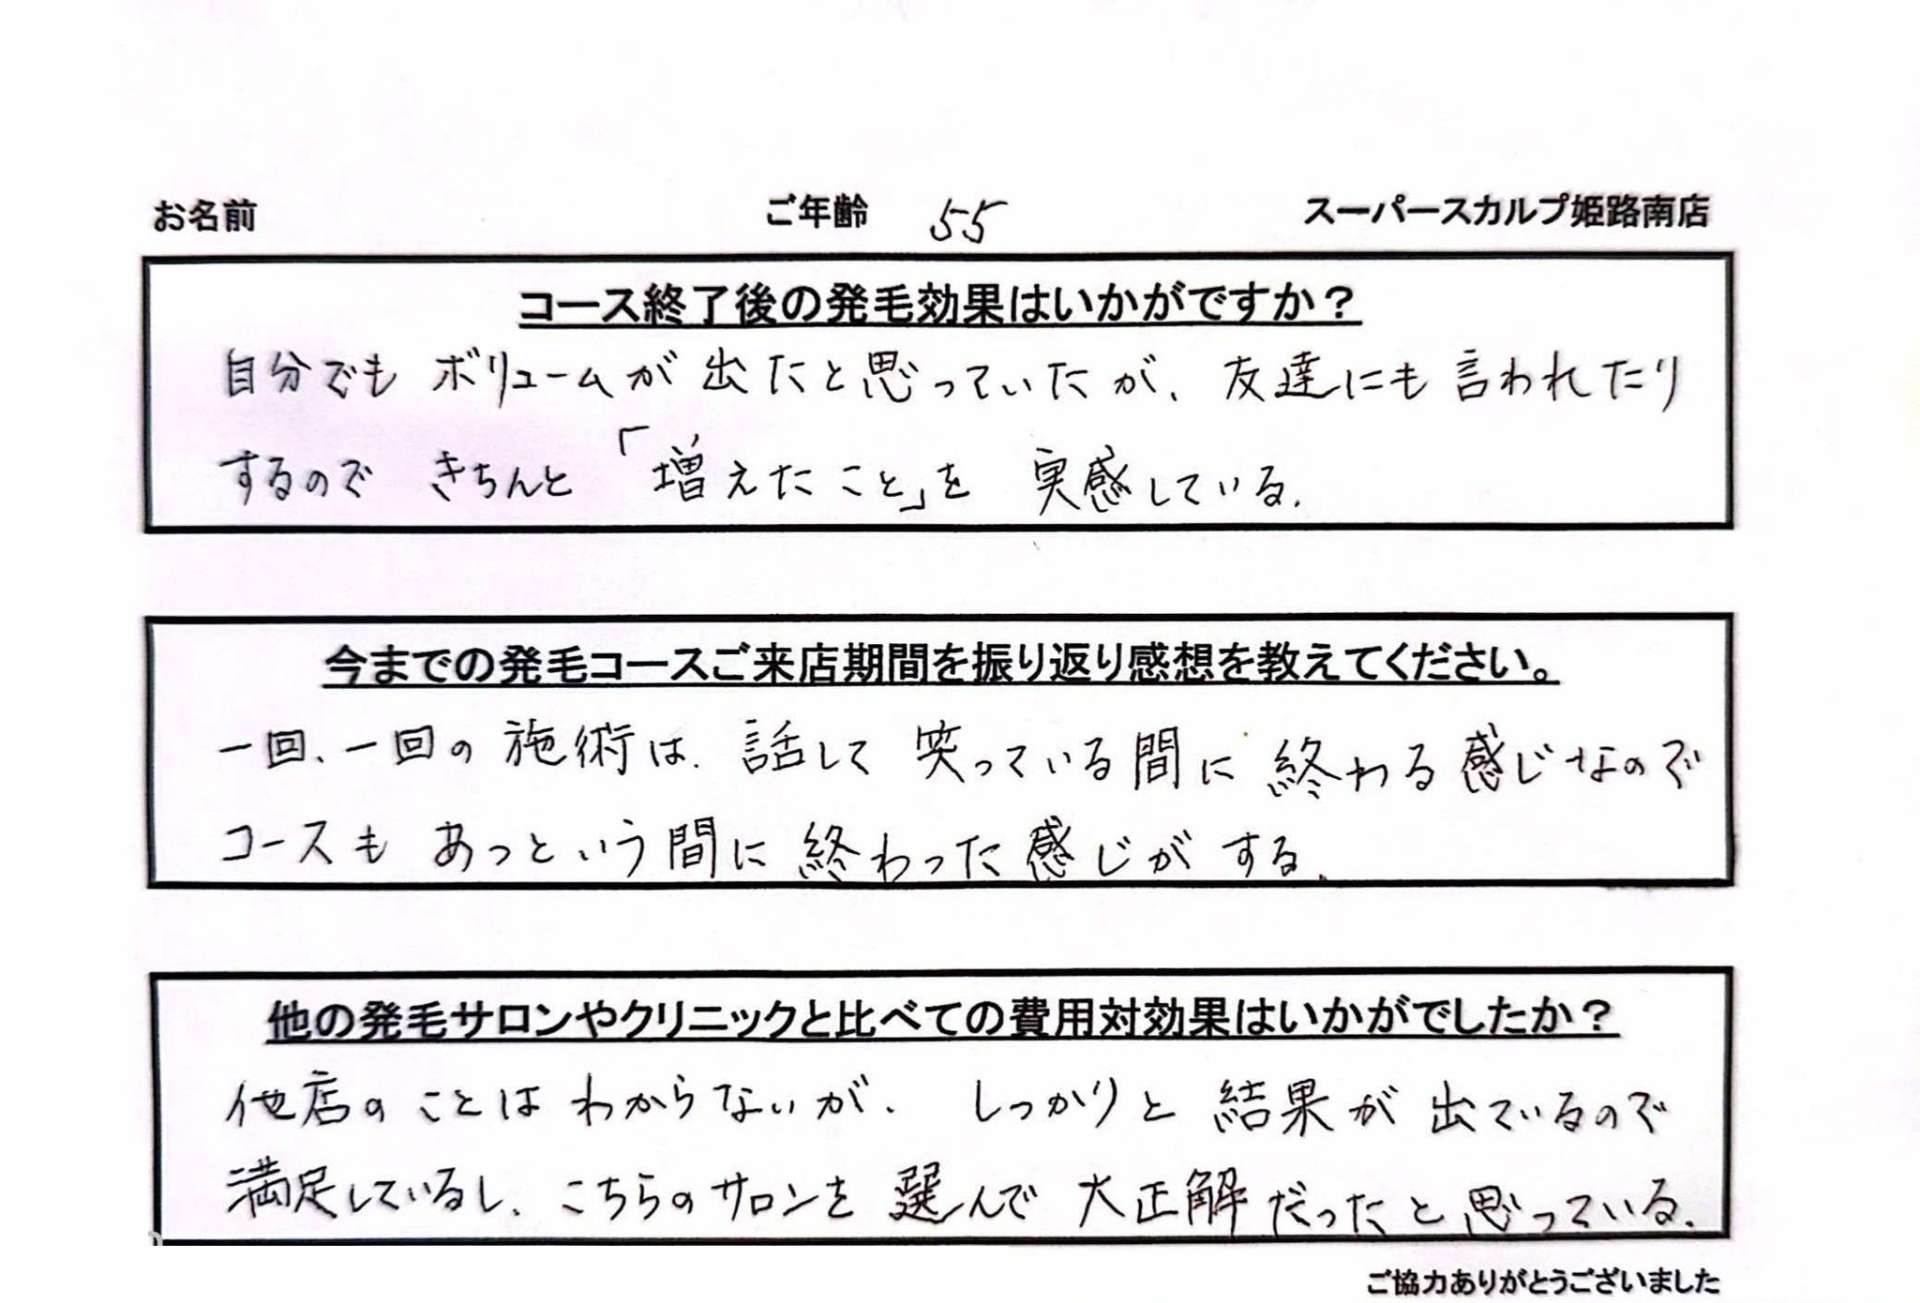 お名前 ご年齢 55 スーパースカルプ姫路南店
コース終了後の発毛効果はいかがですか？
自分でもボリュームが出たと思っていたが、友達にも言われたり
するので きちんと「増えたこと」を 実感している.
今までの発毛コースご来店期間を振り返り感想を教えてください。
一回、一回の施術は、話して笑っている間に終わる感じなので
コースも あっという間に終わった感じがする.
他の発毛サロンやクリニックと比べての費用対効果はいかがでしたか？
他店のことはわからないが、しっかりと結果が出ているので
満足しているし、こちらのサロンを選んで大正解だったと思っている.
ご協力ありがとうございました